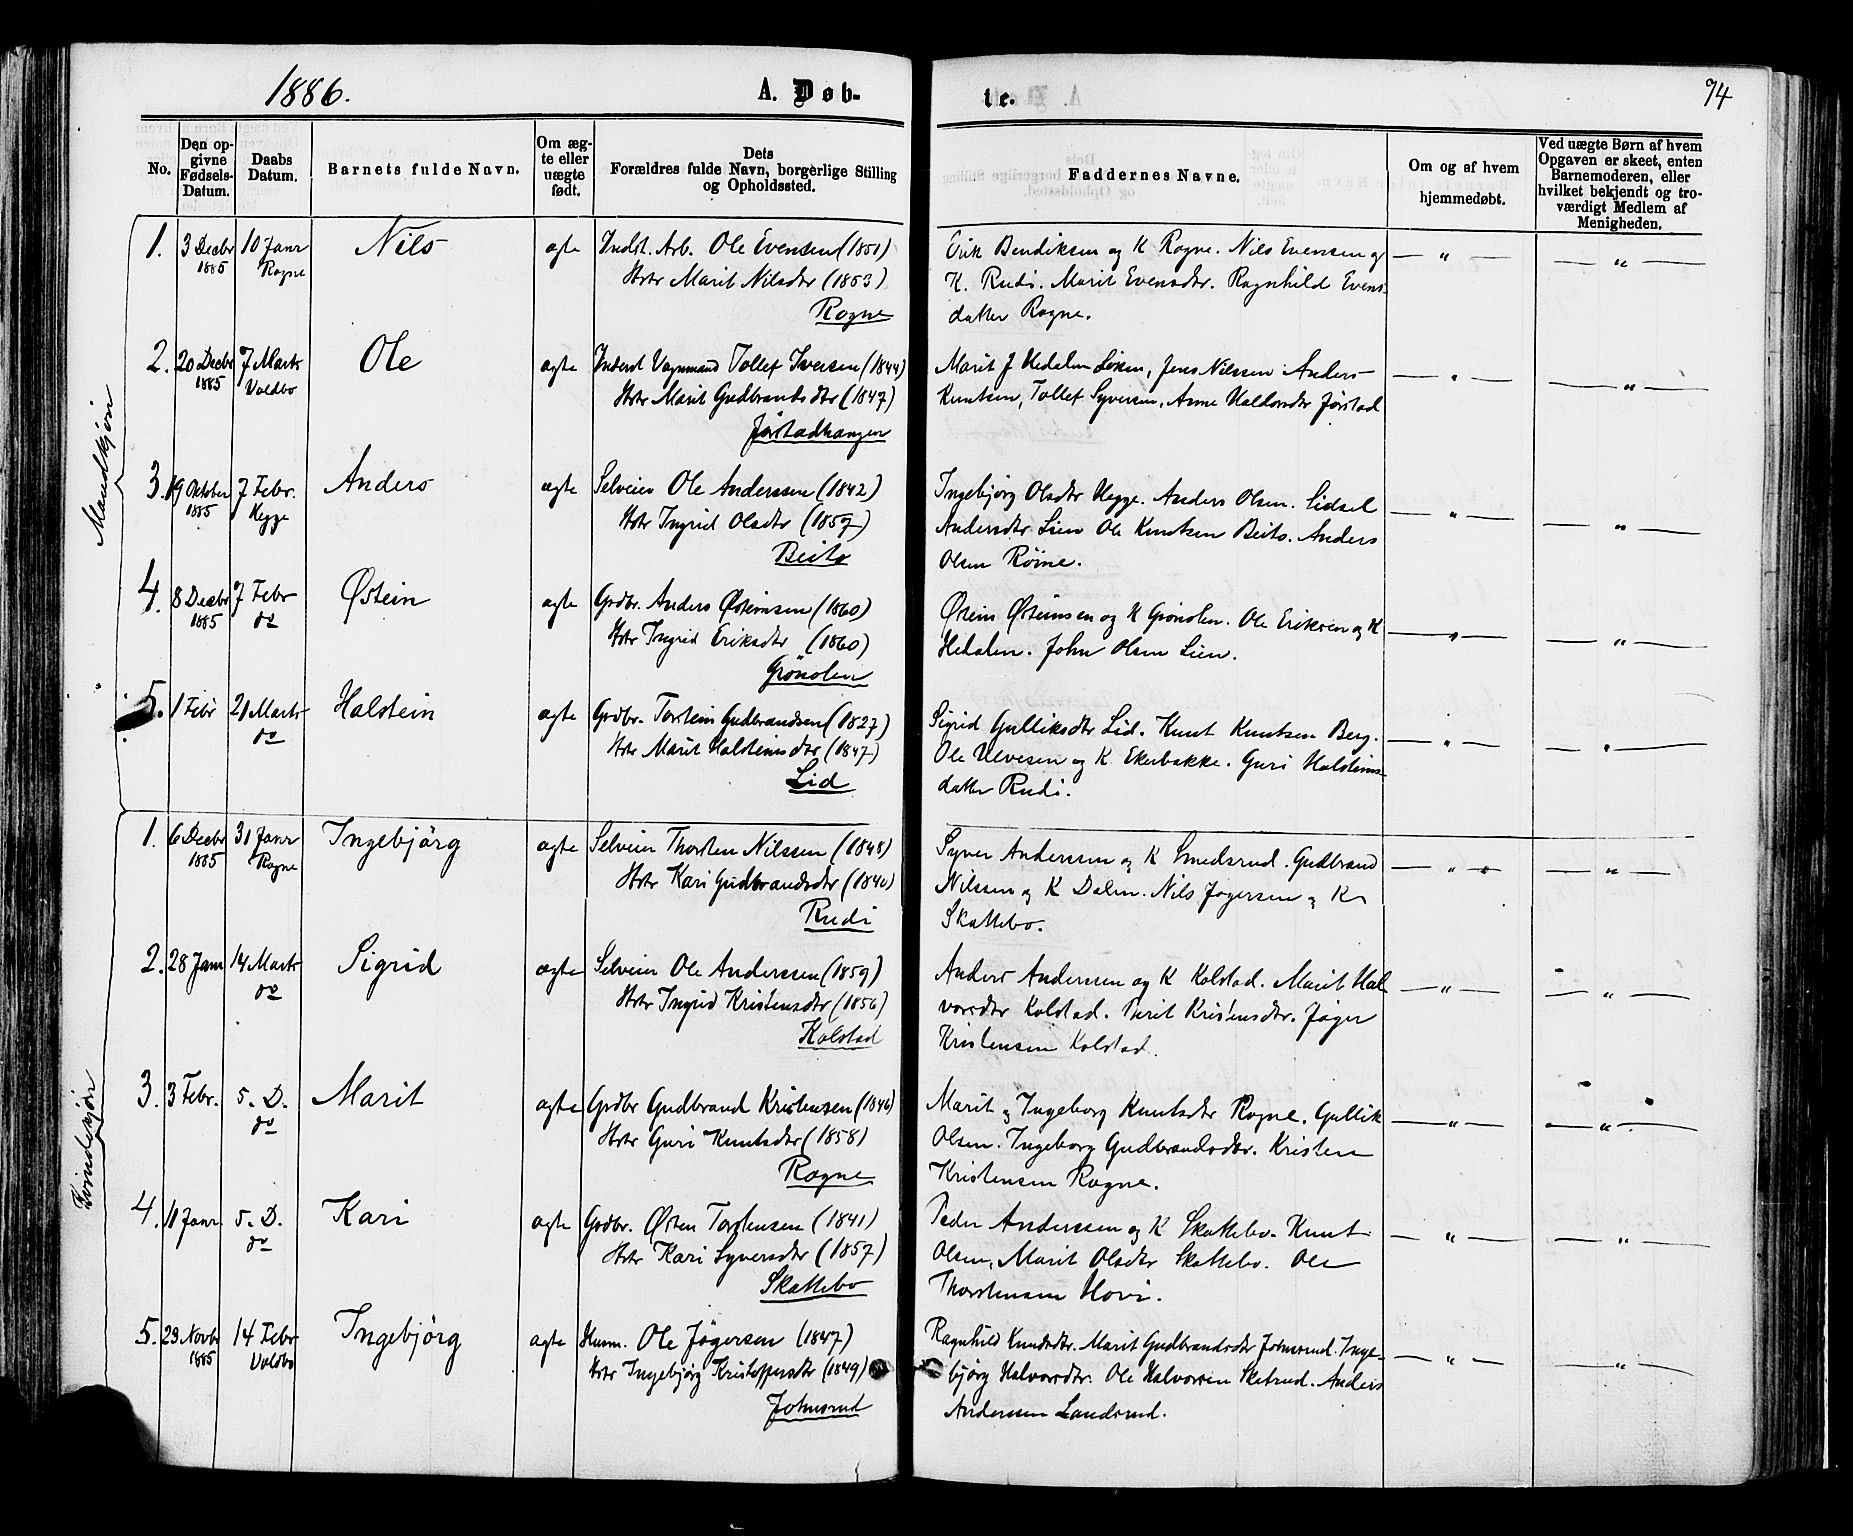 1886.
A. Døb-
te.
74
No.
Den op-
givne
Fødsels-
Datum.
Daabs
Datum.
Barnets fulde Navn.
Om æg-
te eller
uægte
født.
Dets
Forældres fulde Navn, borgerlige Stilling
og Opholdssted.
Faddernes Navne.
Om og af hvem
hjemmedøbt.
Ved uægte Børn af hvem
Opgaven er skeet, enten
Barnemoderen, eller
hvilket bekjendt og tro-
værdigt Medlem af
Menigheden.
Mandkjøn
1. 3 Decbr 10 Janr Nils ægte Indst. Arb. Ole Evensen (1851) Erik Bendiksen og K Rogne. Nils Evensen og — " — — " —
1885 Rogne Hstr Marit Nilsdtr (1853) K. Rudi. Marit Evensdtr. Ragnhild Evens-
Rogne datter Rogne.
2. 20 Decbr 7 Marts Ole ægte Inderst Vognmand Tollef Iversen (1844) Marit J Hedalen Løken, Jens Nilssen Anders — " — — " —
1885 Voldbo Hstr Marit Gudbrandsdtr (1847) Knutsen, Tollef Syversen, Anne Haldorsdtr Jørstad
Jørstadhaugen
3. 19 Oktober 7 Febr. Anders ægte Selveier Ole Anderssen (1842) Ingebjørg Olsdtr Hegge. Anders Olsen. Sidsel — " — — " —
1885 Hegge Hstr Ingrid Olsdtr (1857) Andersdtr Lien Ole Knutsen Beito. Anders
Beito Olsen Røine.
4. 8 Decbr 7 Febr Østein ægte Grdbr. Anders Østeinsen (1860) Østein Østeinsen og K Grønolen. Ole Eriksen og K — " — — " —
1885 do Hstr Ingrid Eriksdtr (1860) Hedalen. John Olsen Lien.
Grønolen
5. 1 Febr 21 Marts Halstein ægte Grdbr. Torstein Gudbrandsen (1827) Sigrid Gulliksdtr Lid. Knut Knutsen Berg. — " — — " —
do Hstr Marit Halsteinsdtr (1847) Ole Ulvesen og K. Ekerbakke. Guri Halsteins-
Lid datter Rudi.
Kvindekjøn
1. 6 Decbr 31 Janr Ingebjørg ægte Selveier Thorsten Nilssen (1848) Syver Anderssen og K Smedsrud. Gudbrand — " — — " —
1885 Rogne Hstr Kari Gudbrandsdtr (1840) Nilssen og K Dalen. Nils Jøgersen og K
Rudi Skattebo.
2. 28 Janr 14 Marts Sigrid ægte Selveier Ole Anderssen (1859) Anders Anderssen og K Kolstad. Marit Hal — " — — " —
do Hstr Ingrid Kristensdtr (1856) vorsdtr Kolstad. Berit Kristensdtr. Jøger
Kolstad Kristensen Kolstad.
3. 3 Febr. 5. D. Marit ægte Grdbr Gudbrand Kristensen (1846) Marit og Ingeborg Knutsdtr Rogne. Gullik — " — — " —
do Hstr Guri Knutsdtr (1858) Olsen. Ingeborg Gudbrandsdtr. Kristen
Rogne Kristensen Rogne.
4. 11 Janr 5. D. Kari ægte Grdbr. Østen Torstensen (1841) Peder Anderssen og K Skattebo. Knut — " — — " —
do Hstr Kari Syversdtr (1857) Olsen, Marit Olsdtr Skattebo. Ole
Skattebo Thorstensen Hovi.
5. 23 Novbr 14 Febr Ingebjørg ægte Husm. Ole Jøgersen (1847) Ragnhild Knudsdtr. Marit Gudbrandsdtr Johnsrud. Inge- — " — — " —
1885 Voldbo Hstr Ingebjørg Kristoffersdtr (1849) bjørg Halvorsdtr. Ole Halvorsen Skatrud. Anders
Johnsrud Anderssen Landsrud.